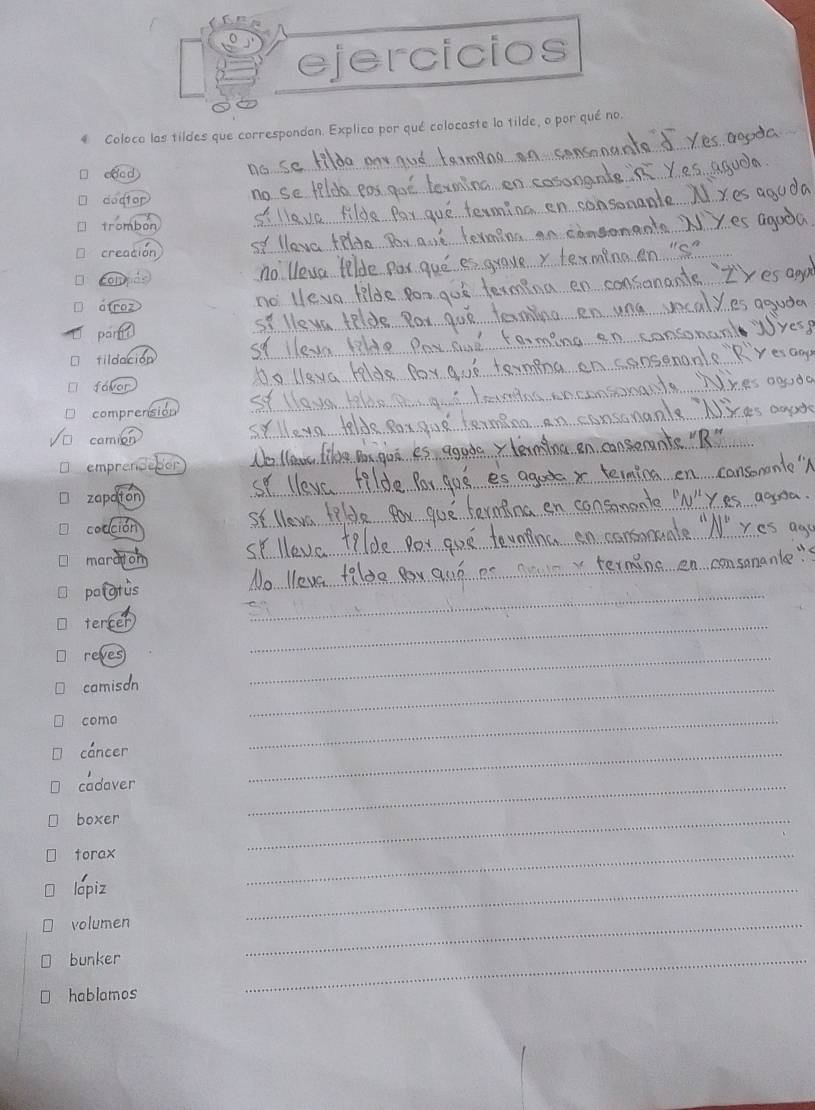 ejercicios
4 Coloca las tildes que correspondan. Explica por qué colocaste la tilde, o por qué no.
edad no se tilda por qué termina en consonante "d" y es aguda
doctor no se tilda por qué termina en cosonante "R" y es aguda
trombón sí lleva tilde Por qué termina en consonante N y es aguda
creación sí lleva tilde Por qué termina en consonante N y es aguda
compás no lleva tilde por qué es grave y termina en "S"
atroz no lleva tilde por qué termina en consonante "Z" y es agu
partí sí lleva tilde Por qué termina en una vocal y es aguda
tildación sí lleva tilde Por qué termina en consonante N y es
favor No lleva tilde Por qué termina en consonante "R" y es
comprensión sí lleva tilde Por qué termina en consonante N y es aguda
camión sí lleva tilde Por qué termina en consonante "N" y es aguda
emprendedor No lleva tilde Por qué es aguda y termina en consonante "R"
zapatón sí lleva tilde Por qué es aguda y termina en consonante "N
cocción sí lleva tilde Por qué termina en consonante "N" y es aguda.
maratón sí lleva tilde Por qué termina en consonante "N" y es agu
patatús No lleva tilde Por qué es y termina en consonante "S
tercer Sí
reves
camisón
coma
cáncer
cádaver
boxer
torax
lápiz
volumen
bunker
hablamos